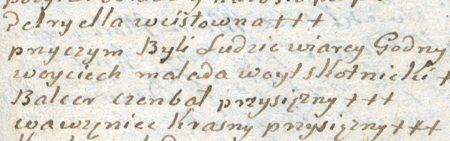 Petryella wcisłowna +++
przyczym Byli Ludzie wiarey Godny
woyciech malada woyt skotnicki +
Balcer czenbał przysięzny +++
wawrzyniec Krasny przysięzny +++